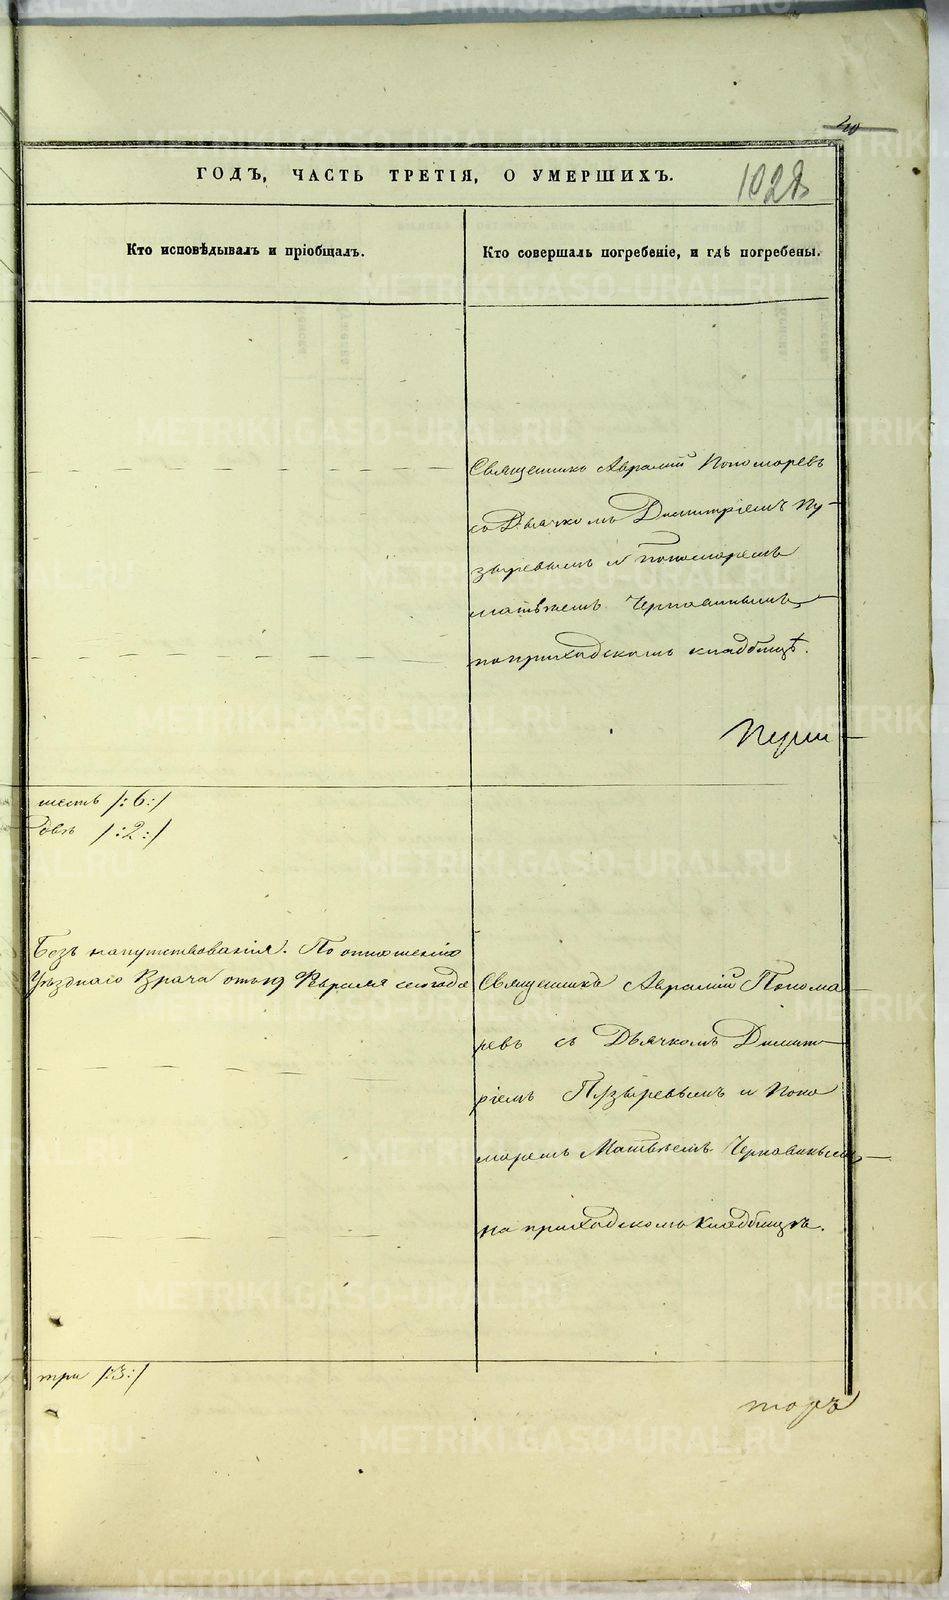 40
ГОДЪ, ЧАСТЬ ТРЕТІЯ, О УМЕРШИХЪ.
Кто исповѣдывалъ и пріобщалъ.
Кто совершалъ погребеніе, и гдѣ погребены.
Священникъ Аврамій Пономаревъ
съ Дьячкомъ Димитріемъ Пу-
зыревымъ и пономаремъ
матвѣемъ Чернавинымъ
на приходскомъ кладбищѣ.
шесть /:6:/
двѣ /:2:/
Безъ напутствованія. По отношенію
Уѣзднаго Врача отъ 19 Февраля сего года
Священникъ Аврамій Понома
ревъ съ Дьячкомъ Димит
ріемъ Пузыревымъ и Поно
маремъ Матвѣемъ Чернавинымъ
на приходскомъ Кладбищѣ.
три /:3:/
METRIKI.GASO-URAL.RU